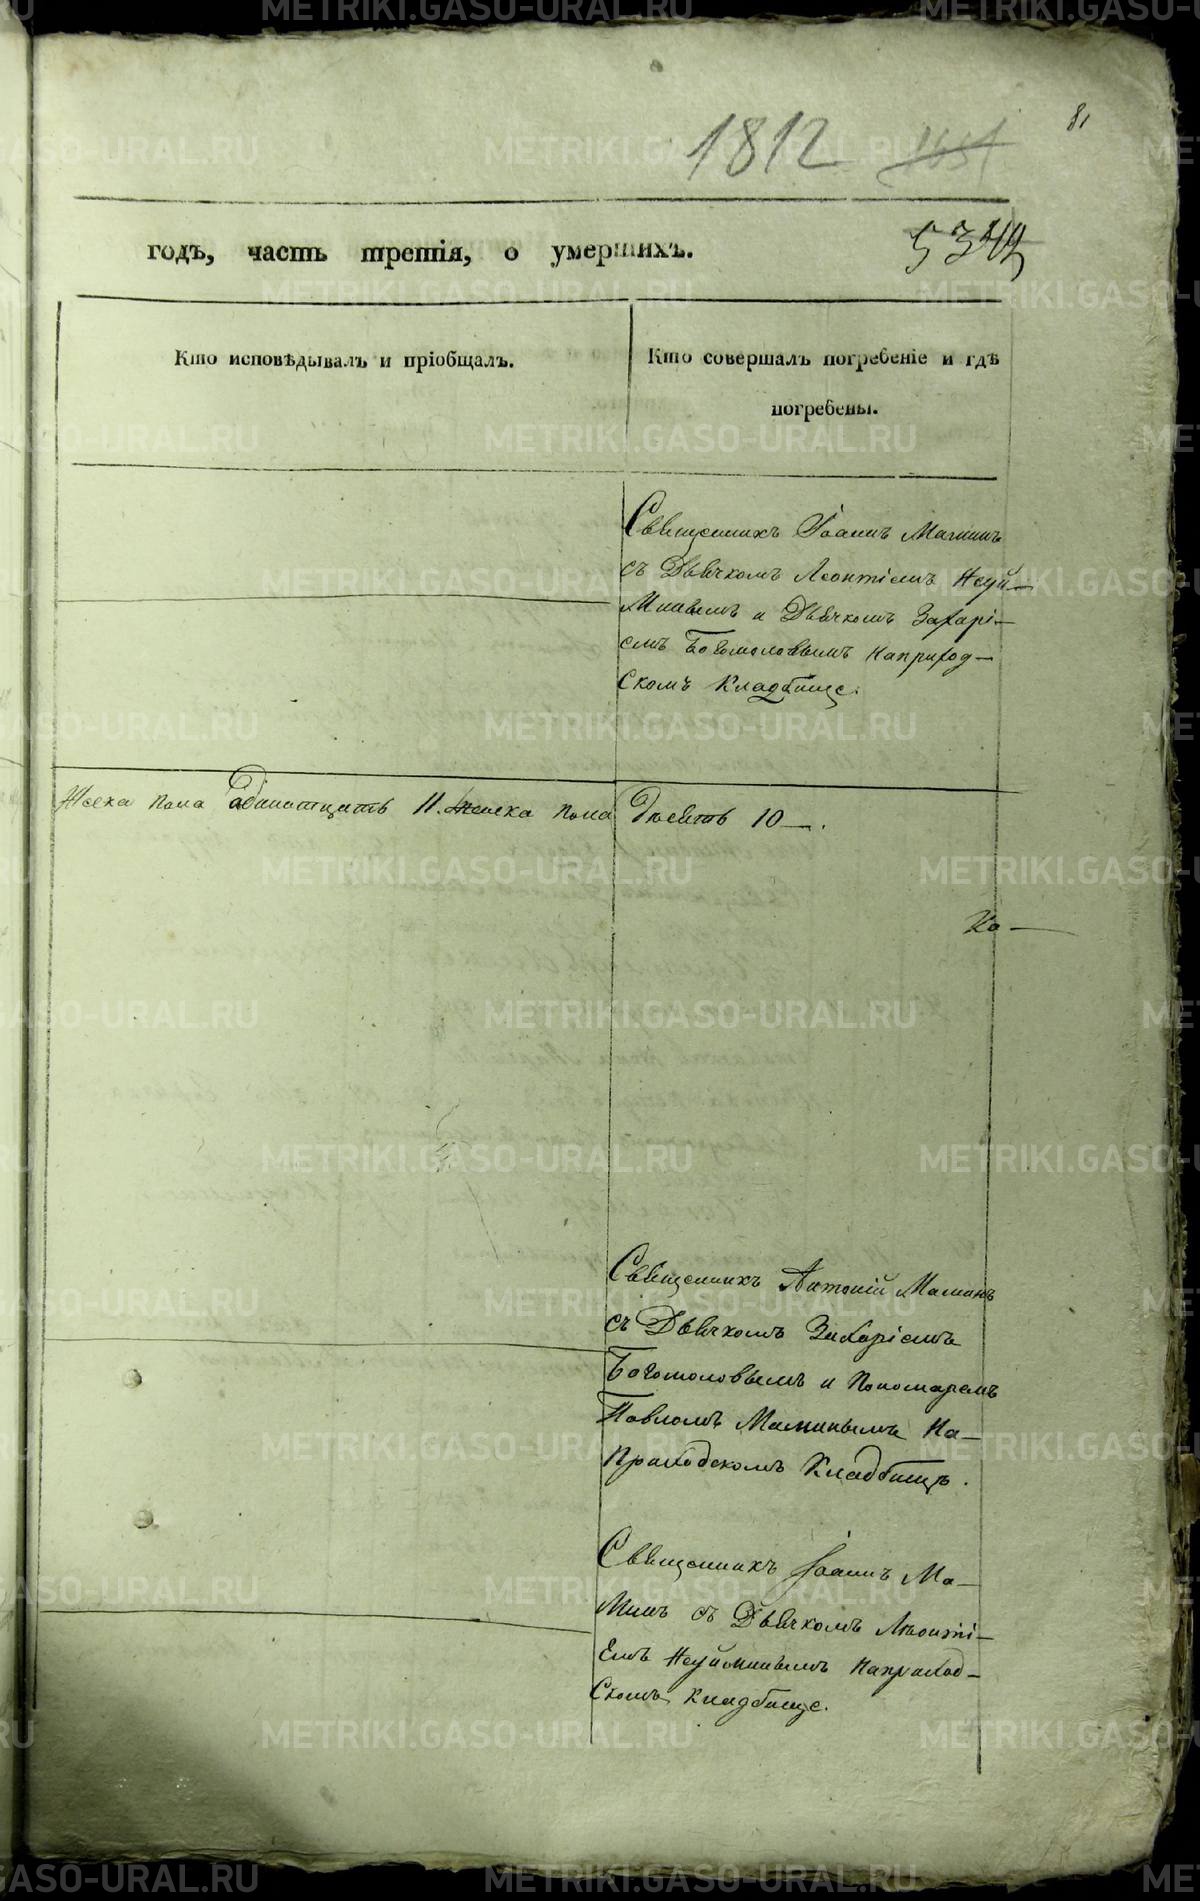 81
1812
годъ, часть третія, о умершихъ.
Кто исповѣдывалъ и пріобщалъ.
Кто совершалъ погребеніе и гдѣ
погребены.
Священникъ Іоаннъ Маминъ
съ Дьячкомъ Леонтіемъ Неуй-
Минымъ и Дьячкомъ Захарі-
емъ Богомоловымъ наприход-
Скомъ Кладбище.
пола адинатцать 11. женска пола Десять 10 .
Священникъ Антоній Маминъ
съ Дьячкомъ Захаріемъ
Богомоловымъ и Пономаремъ
Павломъ Маминымъ На-
Приходскомъ Кладбищѣ.
Священникъ Іоаннъ Ма-
Минъ съ Дьячкомъ Леонті-
Емъ Неуйминымъ наприход-
Скомъ Кладбище.
METRIKI.GASO-URAL.RU